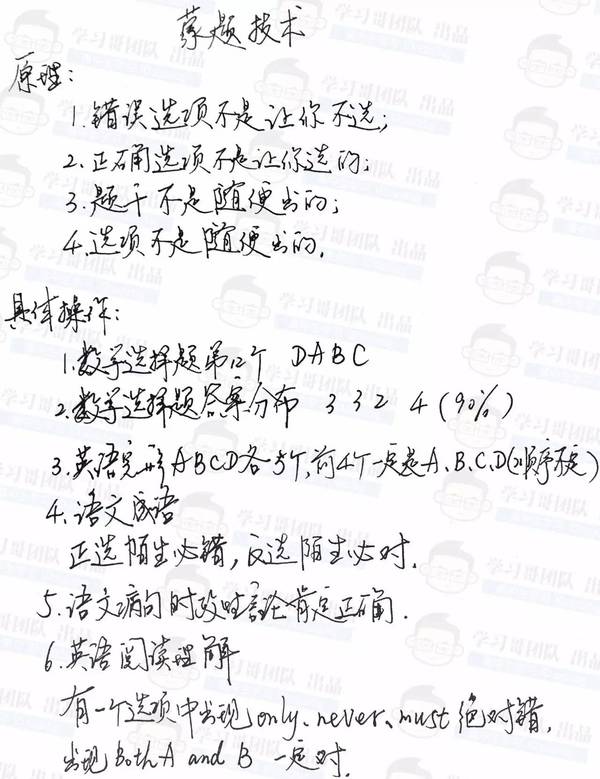 蒙题技术
原理：
1.错误选项不是让你不选；
2.正确选项不是让你选的；
3.题干不是随便出的；
4.选项不是随便出的.
具体操作：
1.数学选择题第12个 DABC
2.数学选择题答案分布 3 3 2 4 (90%)
3.英语完形ABCD各5个,前4个一定是A、B、C、D(顺序不定)
4.语文成语
正选陌生必错,反选陌生必对.
5.语文病句时政性言论肯定正确.
6.英语阅读理解
有一个选项中出现only、never、must绝对错,
出现Both A and B 一定对.
学习哥团队 出品